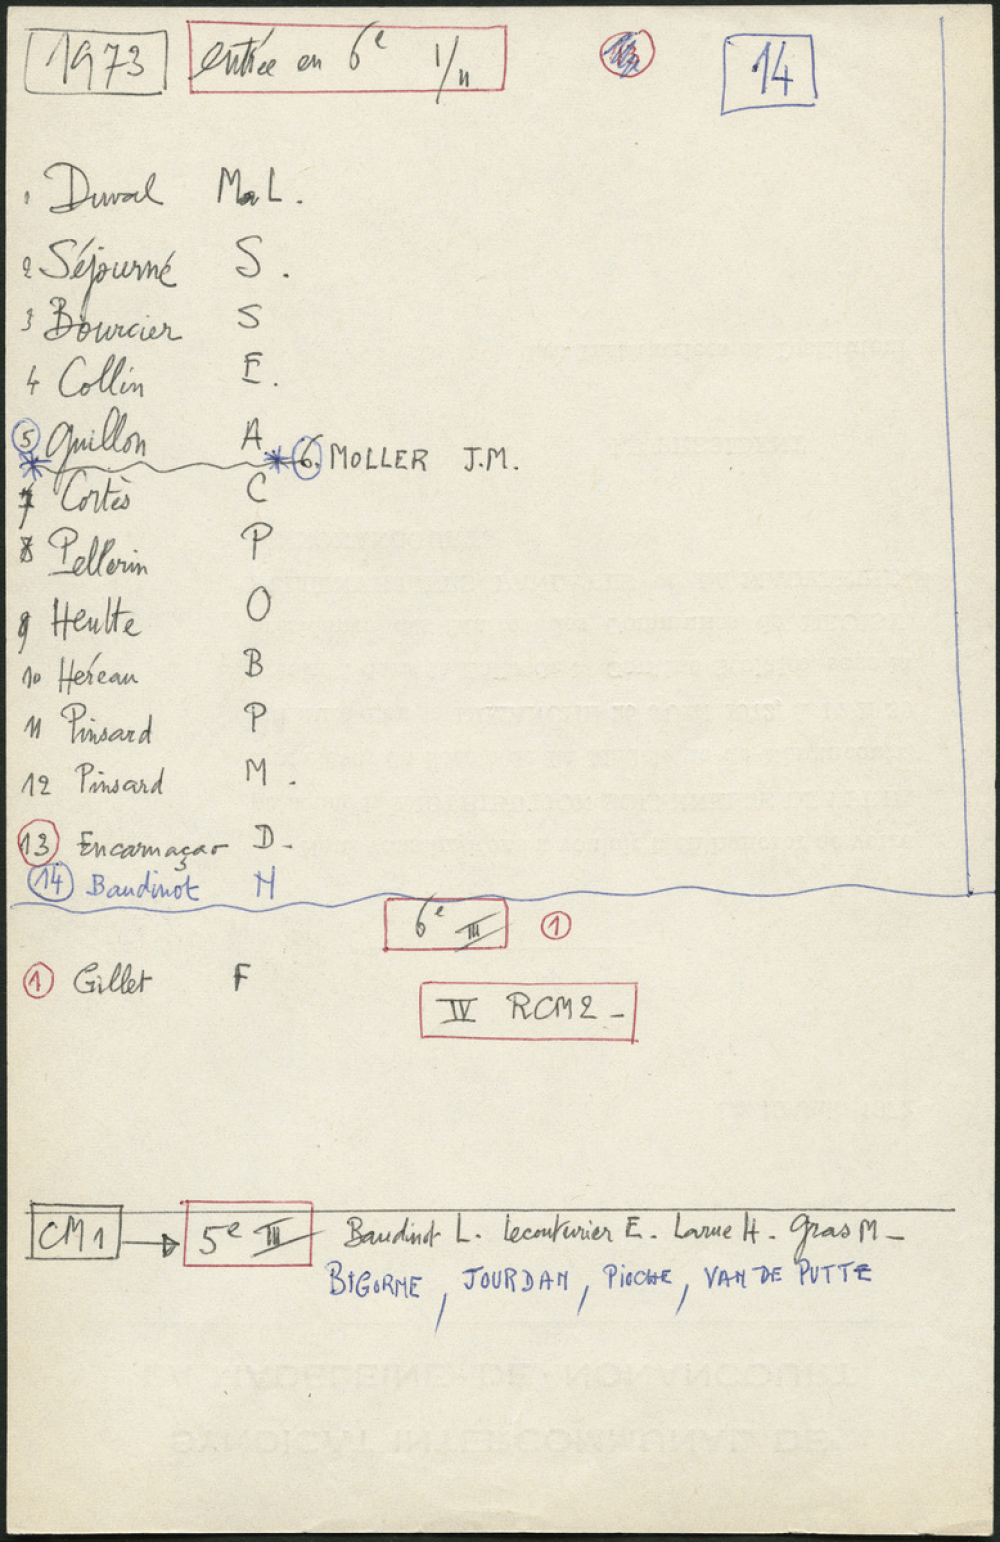 1973 entrée en 6e I/II 14
1 Duval M.L.
2 Séjourné S.
3 Bourcier S
4 Collin E.
5 Guillon A
6. MOLLER J.M.
7 Cortès C
8 Pellerin P
9 Heulte O
10 Heréau B
11 Pinsard P
12 Pinsard M.
13 Encarnaçao D-
14 Baudinot N
6e III 1
1 Gillet F
IV RCM2-
CM1 → 5e III Baudinot L. Lecouturier E. Larue H. Gras M-
BIGORNE, JOURDAN, PIOCHE, VAN DE PUTTE
LA MADELEINE DE NONANCOURT
SYNDICAT INTERCOMMUNAL DE